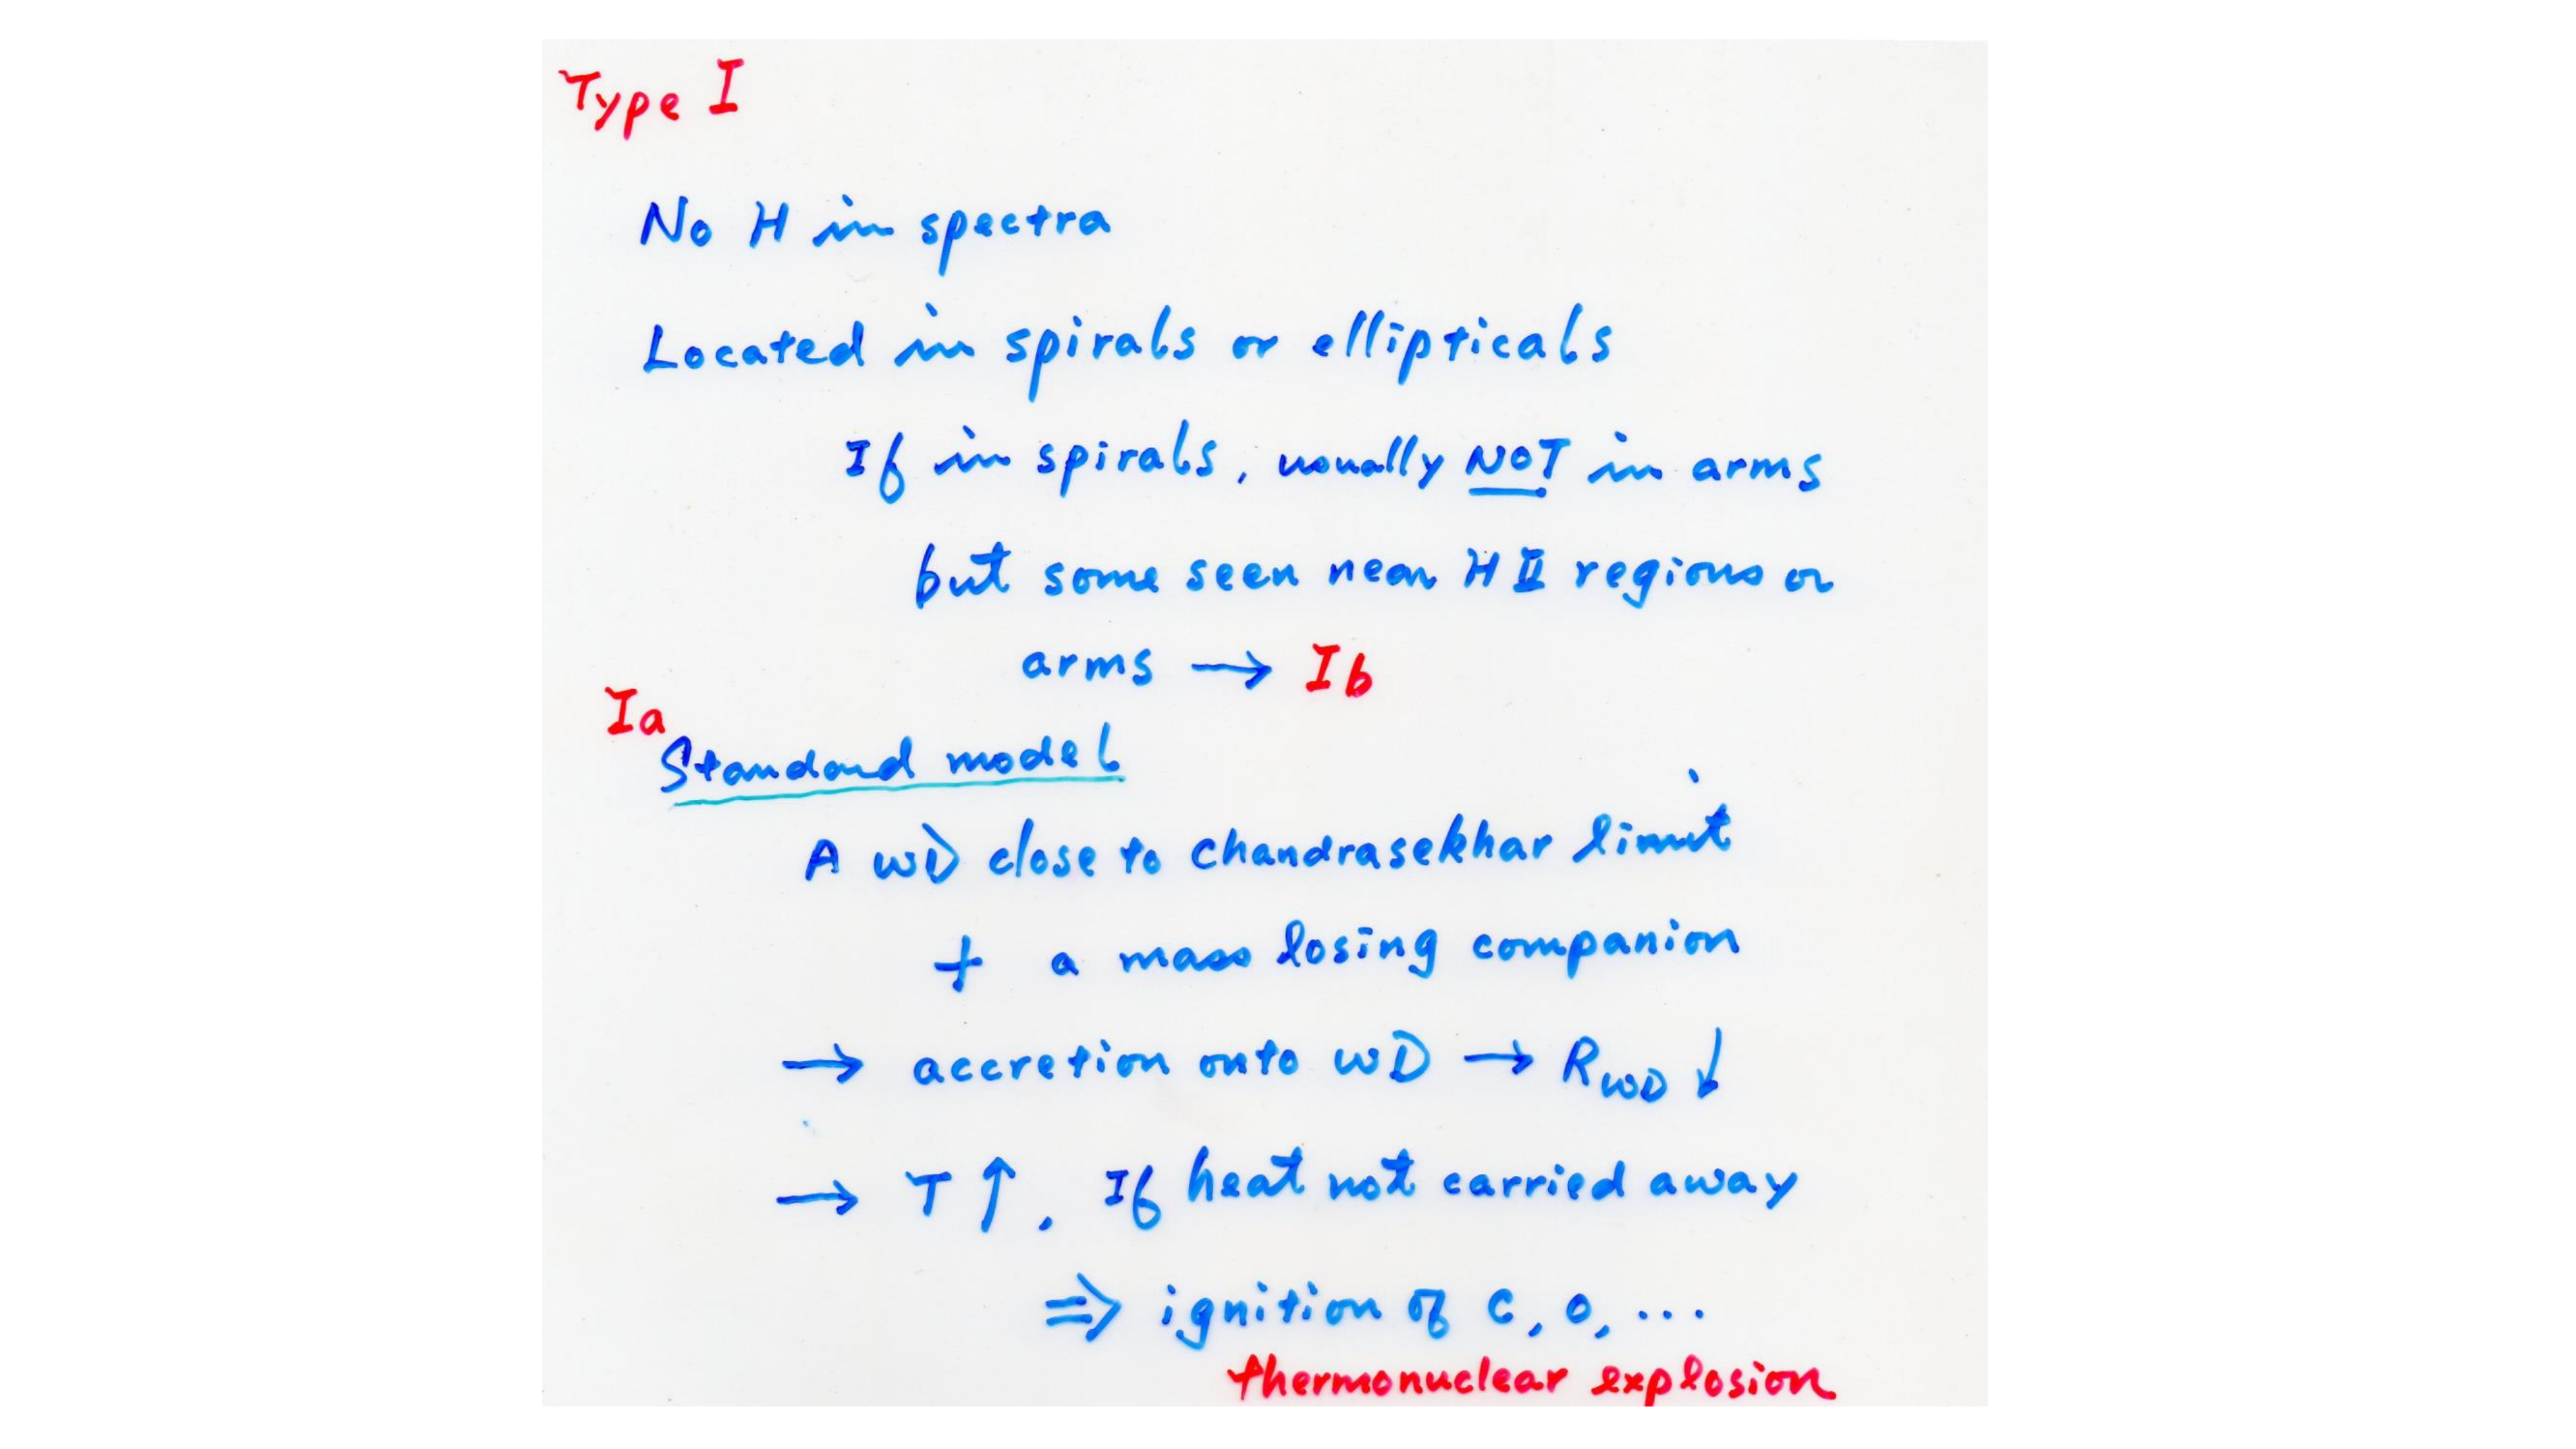 Type I
No H in spectra
Located in spirals or ellipticals
If in spirals, usually NOT in arms
but some seen near H II regions or
arms → Ib
Ia
Standard model
A WD close to Chandrasekhar limit
+ a mass losing companion
→ accretion onto WD → R_WD ↓
→ T ↑. If heat not carried away
⇒ ignition of C, O, ...
thermonuclear explosion